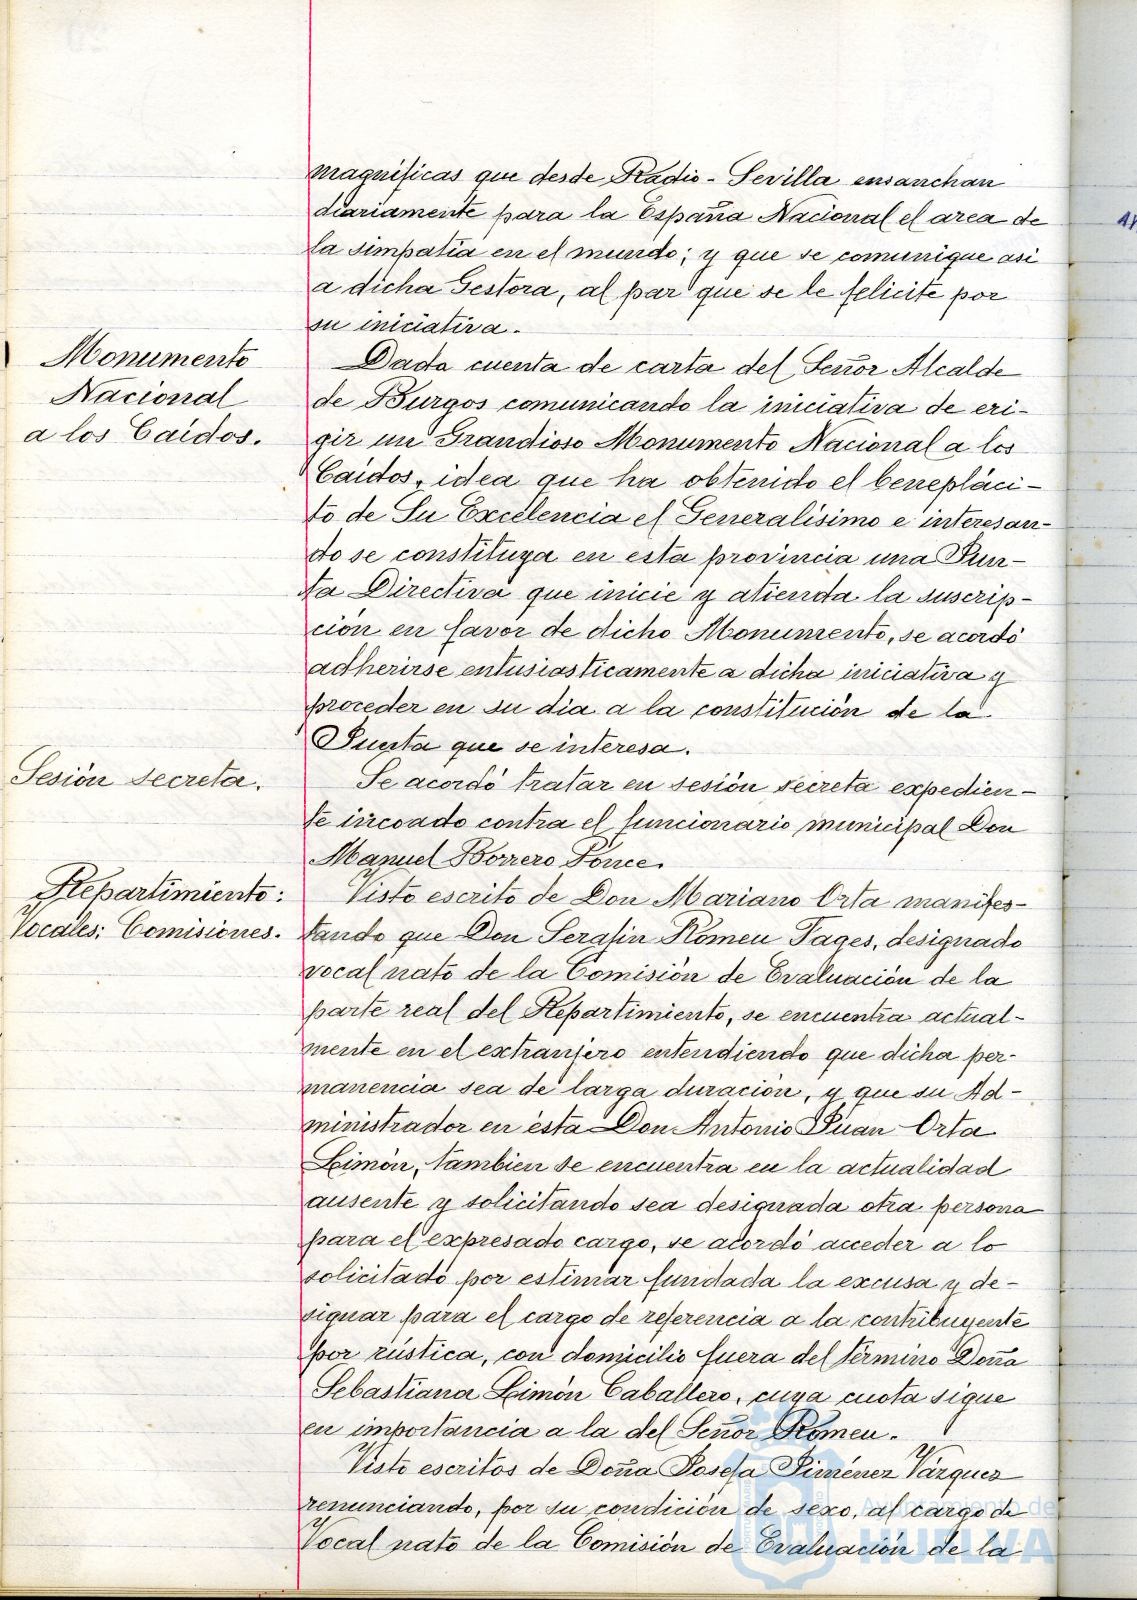 magníficas que desde Radio-Sevilla ensanchan
diariamente para la España Nacional el area de
la simpatía en el mundo; y que se comunique asi
a dicha Gestora, al par que se le felicite por
su iniciativa.
Monumento
Nacional
a los Caídos.
Dada cuenta de carta del Señor Alcalde
de Burgos comunicando la iniciativa de eri-
gir un Grandioso Monumento Nacional a los
Caídos, idea que ha obtenido el benepláci-
to de Su Excelencia el Generalísimo e interesan-
do se constituya en esta provincia una Jun-
ta Directiva que inicie y atienda la suscrip-
ción en favor de dicho Monumento, se acordó
adherirse entusiasticamente a dicha iniciativa y
proceder en su dia a la constitución de la
Junta que se interesa.
Sesión secreta.
Se acordó tratar en sesión secreta expedien-
te incoado contra el funcionario municipal Don
Manuel Borrero Ponce.
Repartimiento:
Vocales: Comisiones.
Visto escrito de Don Mariano Orta manifes-
tando que Don Serafin Romeu Fages, designado
vocal nato de la Comisión de Evaluación de la
parte real del Repartimiento, se encuentra actual-
mente en el extranjero entendiendo que dicha per-
manencia sea de larga duración, y que su Ad-
ministrador en ésta Don Antonio Juan Orta
Limón, tambien se encuentra en la actualidad
ausente y solicitando sea designada otra persona
para el expresado cargo, se acordó acceder a lo
solicitado por estimar fundada la excusa y de-
signar para el cargo de referencia a la contribuyente
por rústica, con domicilio fuera del término Doña
Sebastiana Limón Caballero, cuya cuota sigue
en importancia a la del Señor Romeu.
Visto escritos de Doña Josefa Jiménez Vázquez
renunciando, por su condición de sexo, al cargo de
Vocal nato de la Comisión de Evaluación de la
Ayuntamiento de
HUELVA